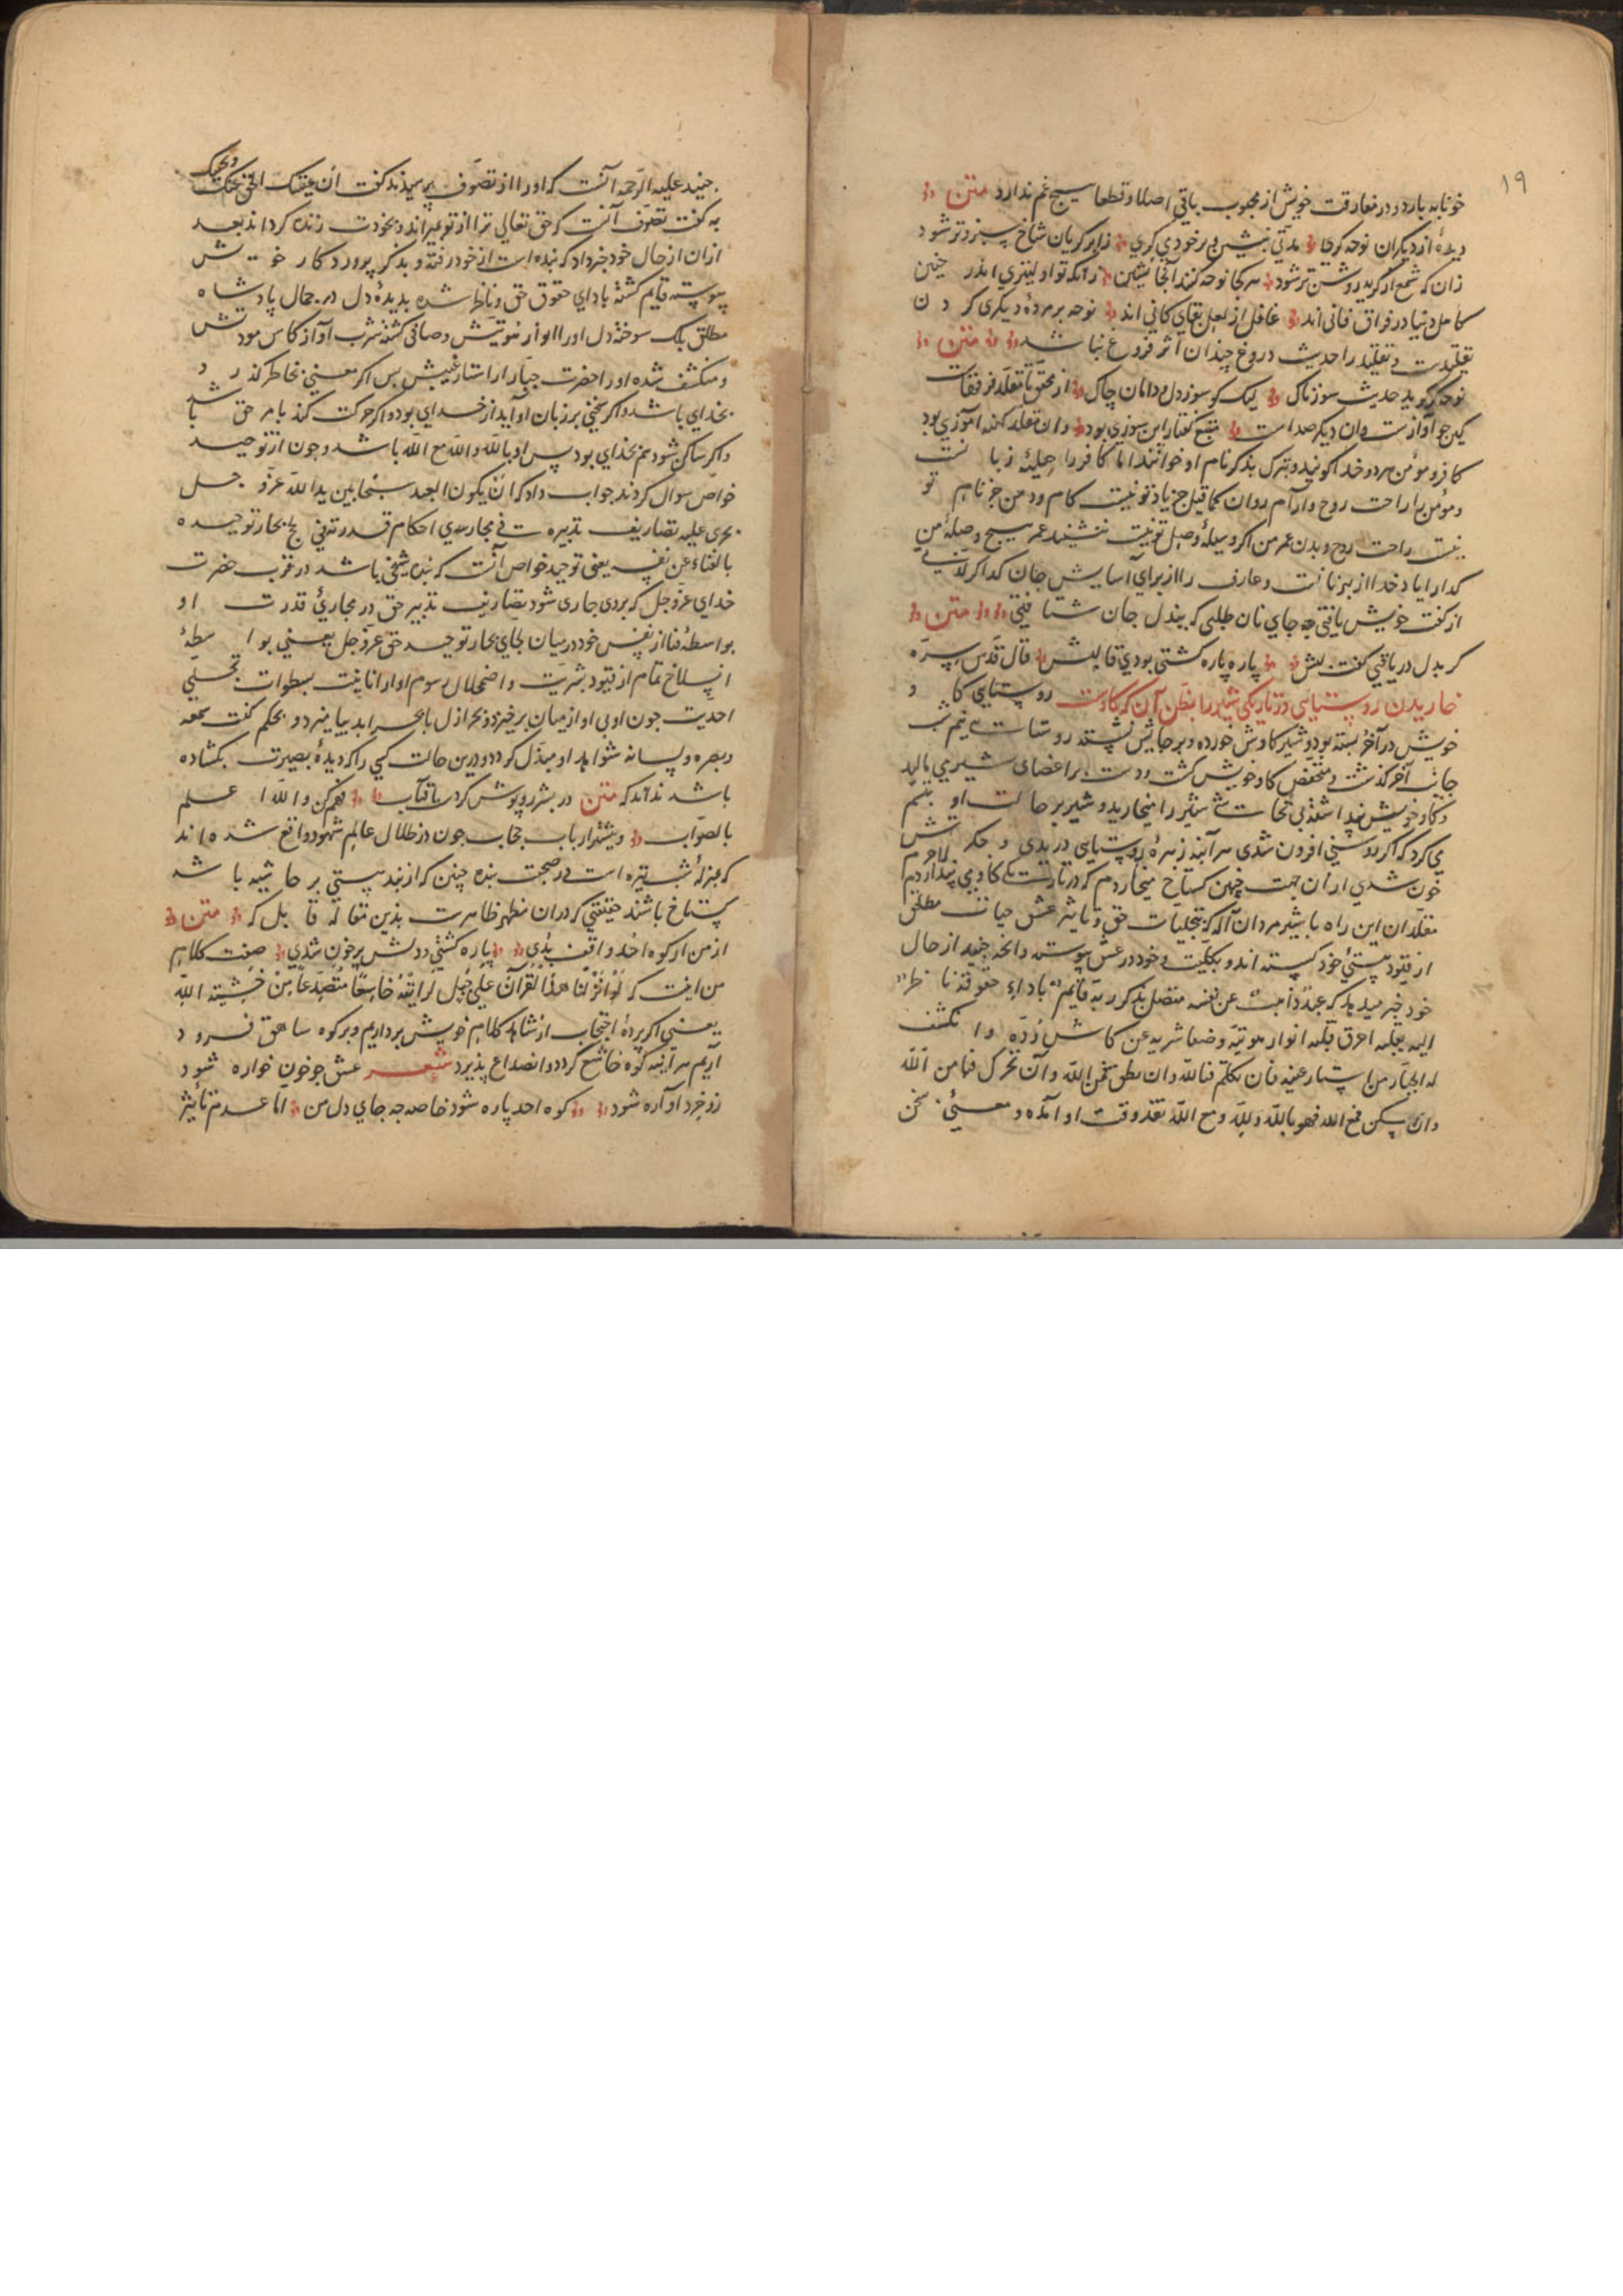 ۱۹
خونابه بارد و در مفارقت خویش از محبوب باقی اصلا و قطعا هیچ غم ندارد متن
دیدهٔ از دیگران نوحه گری مدتی بنشین و بر خود می گری ز ابر گریان شاخ سبز و تر شود
زان که شمع از گریه روشن تر شود هر کجا نوحه کنند آنجا نشین زانکه تو اولیتری اندر حنین
کامل دنیا در فراق فانی اند غافل از لعل بقای کانی اند نوحه بر مردهٔ دیگری کردن
تقلیدست و تقلید را حدیث دروغ چندان اثر فروغ نباشد متن
نوحه گر گوید حدیث سوزناک لیک کو سوز دل و دامان چاک از محقق تا مقلد فرقهاست
کین چو آوازست وان دیگر صداست منبع گفتار این سوزی بود وان مقلد کهنه آموزی بود
کافر و مؤمن هر دو خدا گویند و تبرک بذکر نام او خوانند اما کافر را حلیهٔ زبانست
و مؤمن را راحت روح و آرام روان کما قیل جز یاد تو نیست کام و در من جز نام تو
نیست راحت روح و بدن عمر من اگر وسیلهٔ وصل تو نیست ننشیند عمر هیچ وصیلهٔ من
گدا را یاد خدا از بهر نانست و عارف را از برای آسایش جان گدا اگر لذتی
از گفت خویش یافتی چه جای نان طلبی که ببذل جان شتافتی متن
گر بدل در یافتی گفت لبش پاره پاره گشتی بودی قالبش قال قدس سره
خاریدن روستایی در تاریکی شیر را بظن آن که گاوست روستایی گاو
خویش در آخر بسته بود و شیر گاوش خورده و بر جایش نشسته روستایی نیم شب
جانب آخر گذشت و متفحص گاو خویش گشت و دست بر اعضای شیر می مالید
و گاو خویش پنداشته بی تحاشی شیر را میخارید و شیر بر حالت او تبسم
می کرد که اگر روشنی افزون شدی هر آینه زهرهٔ روستایی دریدی و جگرش
خون شدی از آن جهت چنین گستاخ میخاردم که در تاریست که گاوی پنداردم لاجرم
مقلدان این راه با شیر مردان آگاه که بتجلیات حق و تأثیر عشق حیات مطلق
از قیود هستیٔ خود گسسته اند و بکلیت وجود در عشق پیوسته و آنچه جنید از حال
خود خبر میدهد که عبد ذاهب عن نفسه متصل بذکر ربه قایم باداء حقوقه ناظر
الیه بقلبه احرق قلبه انوار هویته و صفا شربه عن کاس وده وانکشف
له الجبار من استار غیبه فان تکلم فبالله وان نطق فعن الله وان تحرک فبامر الله
وان سکن فمع الله فهو بالله و لله و مع الله نقد وقت او آمده و معنیٔ سخن
جنید علیه الرحمه آنست که او را از تصوف پرسیدند گفت ان یمیتک الحق عنک و یحییک
به گفت تصوف آنست که حق تعالی ترا از تو بمیراند و بخودت زنده گرداند بعد
از آن از حال خود خبر داد که بنده است از خود رفته و بذکر پروردگار خویش
پیوسته قایم گشته بادای حقوق حق و ناظر شده بدیدهٔ دل در جمال پادشاه
مطلق بلک سوخته دل او را انوار هویتش و صافی گشته شرب او از کاس مودتش
و منکشف شده او را حضرت جبار از استار غیبش پس اگر معنی بخاطر گذرد
بخدای باشد و اگر سخنی بر زبان او آید از خدای بود و اگر حرکت کند بامر حق باشد
و اگر ساکن شود هم بخدای بود پس او بالله و الله مع الله باشد و چون از توحید
خواص سوال کردند جواب داد که ان یکون العبد شبحا بین یدی الله عز و جل
یجری علیه تصاریف تدبیره فی مجاری احکام قدرته فی لج بحار توحیده
بالفناء عن نفسه یعنی توحید خواص آنست که بنده شخصی باشد در قرب حضرت
خدای عز و جل که بروی جاری شود تصاریف تدبیر حق در مجاریٔ قدرت او
بواسطهٔ فنا از نفس خود در میان لجهای بحار توحید حق عز و جل یعنی بواسطهٔ
انسلاخ تمام از قیود بشریت و اضمحلال رسوم او از انانیت بسطوات تجلی
احدیت چون اویی او از میان برخیزد و بحر ازل با بحر ابد بیامیزد و بحکم کنت سمعه
و بصره و لسانه شواهد او مبدل گردد و درین حالت کسی را که دیدهٔ بصیرت بگشاده
باشد نداند که متن در بشر روپوش کردست آفتاب فهم کن والله اعلم
بالصواب و بیشتر ارباب حجاب چون در ظلال عالم شهود واقع شده اند
که بمنزلهٔ شب تیره است در صحبت بنده چنین که از بند هستی بر حاشیه باشد
گستاخ باشند حقیقتی که در آن مظهر ظاهرست بدین مقاله قابل که متن
از من ار کوه احد واقف بدی پاره گشتی و دلش پر خون شدی صفت کلام
من اینست که لو انزلنا هذا القرآن علی جبل لرایته خاشعا متصدعا من خشیة الله
یعنی اگر پردهٔ احتجاب از شاهد کلام خویش برداریم و بر کوه شاهق فرود
آریم هر آینه کوه خاشع گردد و انصداع پذیرد شعر عشق چو خون خواره شود
زو خرد آواره شود کوه احد پاره شود خاصه چه جای دل من اما عدم تأثیر